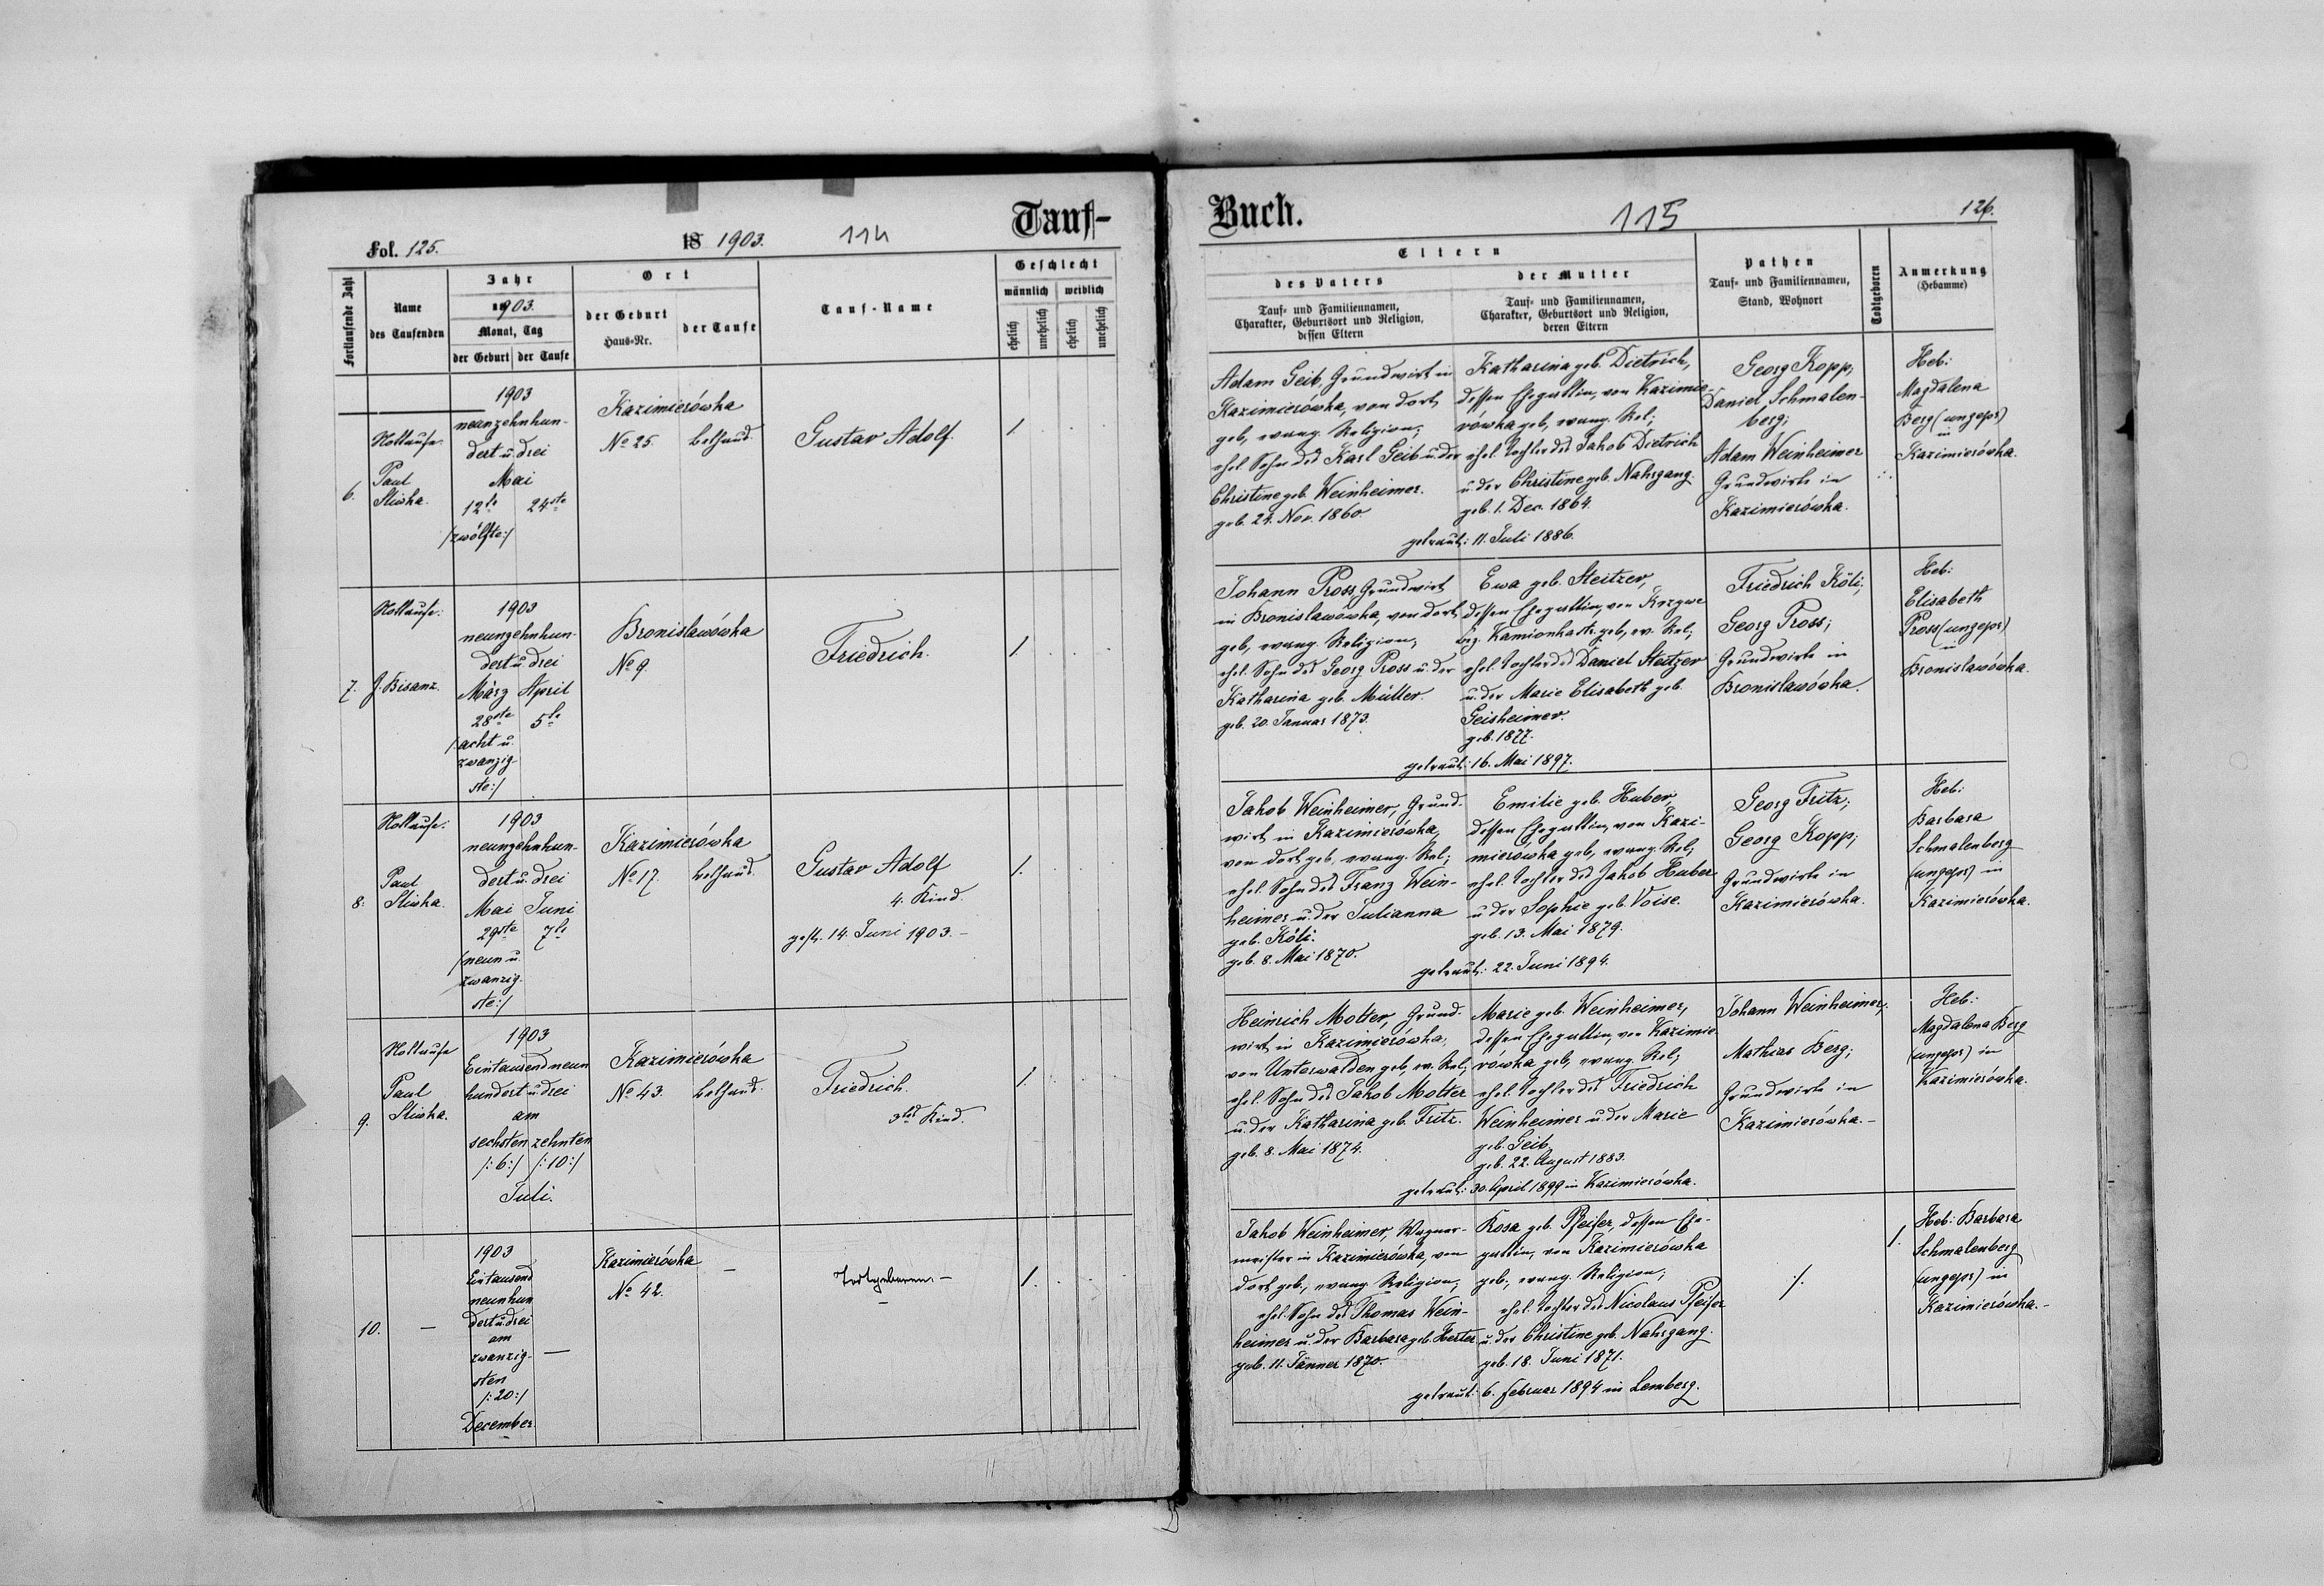 Tauf-
Fol. 125.
18 1903.
114
Fortlaufende Zahl
Name
des Taufenden
Jahr
1903.
Monat, Tag
der Geburt
der Taufe
Ort
der Geburt
Haus-Nr.
der Taufe
Tauf-Name
Geschlecht
männlich
weiblich
ehelich
unehelich
ehelich
unehelich
6.
Nottaufe.
Paul
Sliwka.
1903
neunzehnhun-
dert u. drei
Mai
12te 24ste
/zwölfte:/
Kazimierówka
No 25. Bethaus.
Gustav Adolf.
1.
7.
Nottaufe:
J. Bisanz.
1903
neunzehnhun-
dert u. drei
März April
28ste 5te
/:acht u.
zwanzig-
ste:/
Bronislawówka
No 9.
Friedrich.
1.
8.
Nottaufe:
Paul
Sliwka.
1903
neunzehnhun-
dert u. drei
Mai Juni
29ste 7te
/neun u.
zwanzig-
ste:/
Kazimierówka
No 17. Bethaus.
Gustav Adolf
4. Kind.
gest. 14. Juni 1903.-
1.
9.
Nottaufe
Paul
Sliwka.
1903
Eintausendneun
hundert u. drei
am
sechsten zehnten
/:6:/ /:10:/
Juli.
Kazimierówka
No 43. Bethaus.
Friedrich.
3tes Kind.
1.
10.
—
1903
Eintausend
neunhun
dert u. drei
am
zwanzig-
sten —
/:20:/
December.
Kazimierówka
No 42. —
Todtgeboren. -
1.
Buch.
115
126.
Eltern
des Vaters
Tauf- und Familiennamen,
Charakter, Geburtsort und Religion,
dessen Eltern
der Mutter
Tauf- und Familiennamen,
Charakter, Geburtsort und Religion,
deren Eltern
Pathen
Tauf- und Familiennamen,
Stand, Wohnort
Todtgeboren
Anmerkung
(Hebamme)
Adam Geib, Grundwirt in
Kazimierówka, von dort
geb, evang. Religion;
ehel. Sohn des Karl Geib u. der
Christine geb. Weinheimer.
geb. 24. Nov. 1860.
Katharina geb. Dietrich,
dessen Ehegattin, von Kazimie-
rówka geb, evang. Rel;
ehel. Tochter des Jakob Dietrich
u. der Christine geb. Nahrgang.
geb. 1. Dec. 1864.
getraut: 11. Juli 1886.
Georg Kopp;
Daniel Schmalen-
berg;
Adam Weinheimer
Grundwirte in
Kazimierówka.
Heb:
Magdalena
Berg (ungepr)
in
Kazimierówka.
Johann Pross, Grundwirt
in Bronislawówka, von dort
geb, evang. Religion,
ehel. Sohn des Georg Pross u. der
Katharina geb. Müller.
geb. 20. Januar 1873.
Ewa geb. Steitzer,
dessen Ehegattin, von
Bez. Kamionka str. geb, ev. Rel;
ehel. Tochter des Daniel Steitzer
u. der Marie Elisabeth geb.
Geisheimer.
geb. 1877.
getraut: 16. Mai 1897.
Friedrich Köli;
Georg Pross;
Grundwirte in
Bronislawówka.
Heb:
Elisabeth
Pross (ungepr)
in
Bronislawówka.
Jakob Weinheimer, Grund-
wirt in Kazimierówka,
von dort geb, evang. Rel;
ehel. Sohn des Franz Wein-
heimer u. der Julianna
geb. Köli.
geb. 8. Mai 1870.
Emilie geb. Huber
dessen Ehegattin, von Kazi-
mierówka geb, evang. Rel;
ehel. Tochter des Jakob Huber
u. der Sophie geb. Voise.
geb. 13. Mai 1879.
getraut: 22. Juni 1894.
Georg Fritz;
Georg Kopp;
Grundwirte in
Kazimierówka.
Heb:
Barbara
Schmalenberg
(ungepr) in
Kazimierówka.
Heinrich Motter, Grund-
wirt in Kazimierówka,
von Unterwalden geb, ev. Rel;
ehel. Sohn des Jakob Motter
u. der Katharina geb. Fritz.
geb. 8. Mai 1874.
Marie geb. Weinheimer,
dessen Ehegattin, von Kazimie-
rówka geb, evang. Rel;
ehel. Tochter des Friedrich
Weinheimer u. der Marie
geb. Geib
geb. 22. August 1883.
getraut: 30. April 1899 in Kazimierówka.
Johann Weinheimer;
Mathias Berg;
Grundwirte in
Kazimierówka.-
Heb:
Magdalena Berg
(ungepr) in
Kazimierówka.
Jakob Weinheimer, Wagner-
meister in Kazimierówka, von
dort geb, evang. Religion,
ehel. Sohn des Thomas Wein-
heimer u. der Barbara geb. Herter
geb. 11. Jänner 1870.
Rosa geb. Pfeifer, dessen Ehe-
gattin, von Kazimierówka
geb, evang. Religion;
ehel. Tochter des Nicolaus Pfeifer
u. der Christine geb. Nahrgang.
geb. 18. Juni 1871.
getraut: 6. Februar 1894 in Lemberg.
/.
1.
Heb: Barbara
Schmalenberg
(ungepr) in
Kazimierówka.-